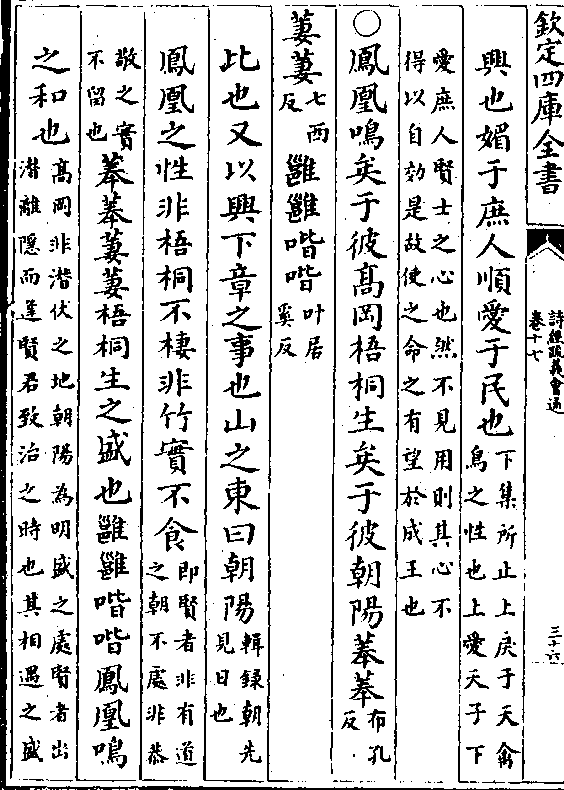 欽定四庫全書
詩經疏義會通
卷十七
三十六
興也媚于庶人順愛于民也下集所止上戾于天禽鳥之性也上愛天子下
愛庶人賢士之心也然不見用則其心不得以自効是故使之命之有望於成王也
○鳳凰鳴矣于彼髙岡梧桐生矣于彼朝陽菶菶布孔反
萋萋七西反雝雝喈喈叶居奚反
比也又以興下章之事也山之東曰朝陽輯録朝先見日也
鳳凰之性非梧桐不棲非竹實不食即賢者非有道之朝不處非恭
敬之實不留也菶菶萋萋梧桐生之盛也雝雝喈喈鳳凰鳴
之和也髙岡非潜伏之地朝陽為明盛之處賢者出潜離隠而逢賢君致治之時也其相遇之盛